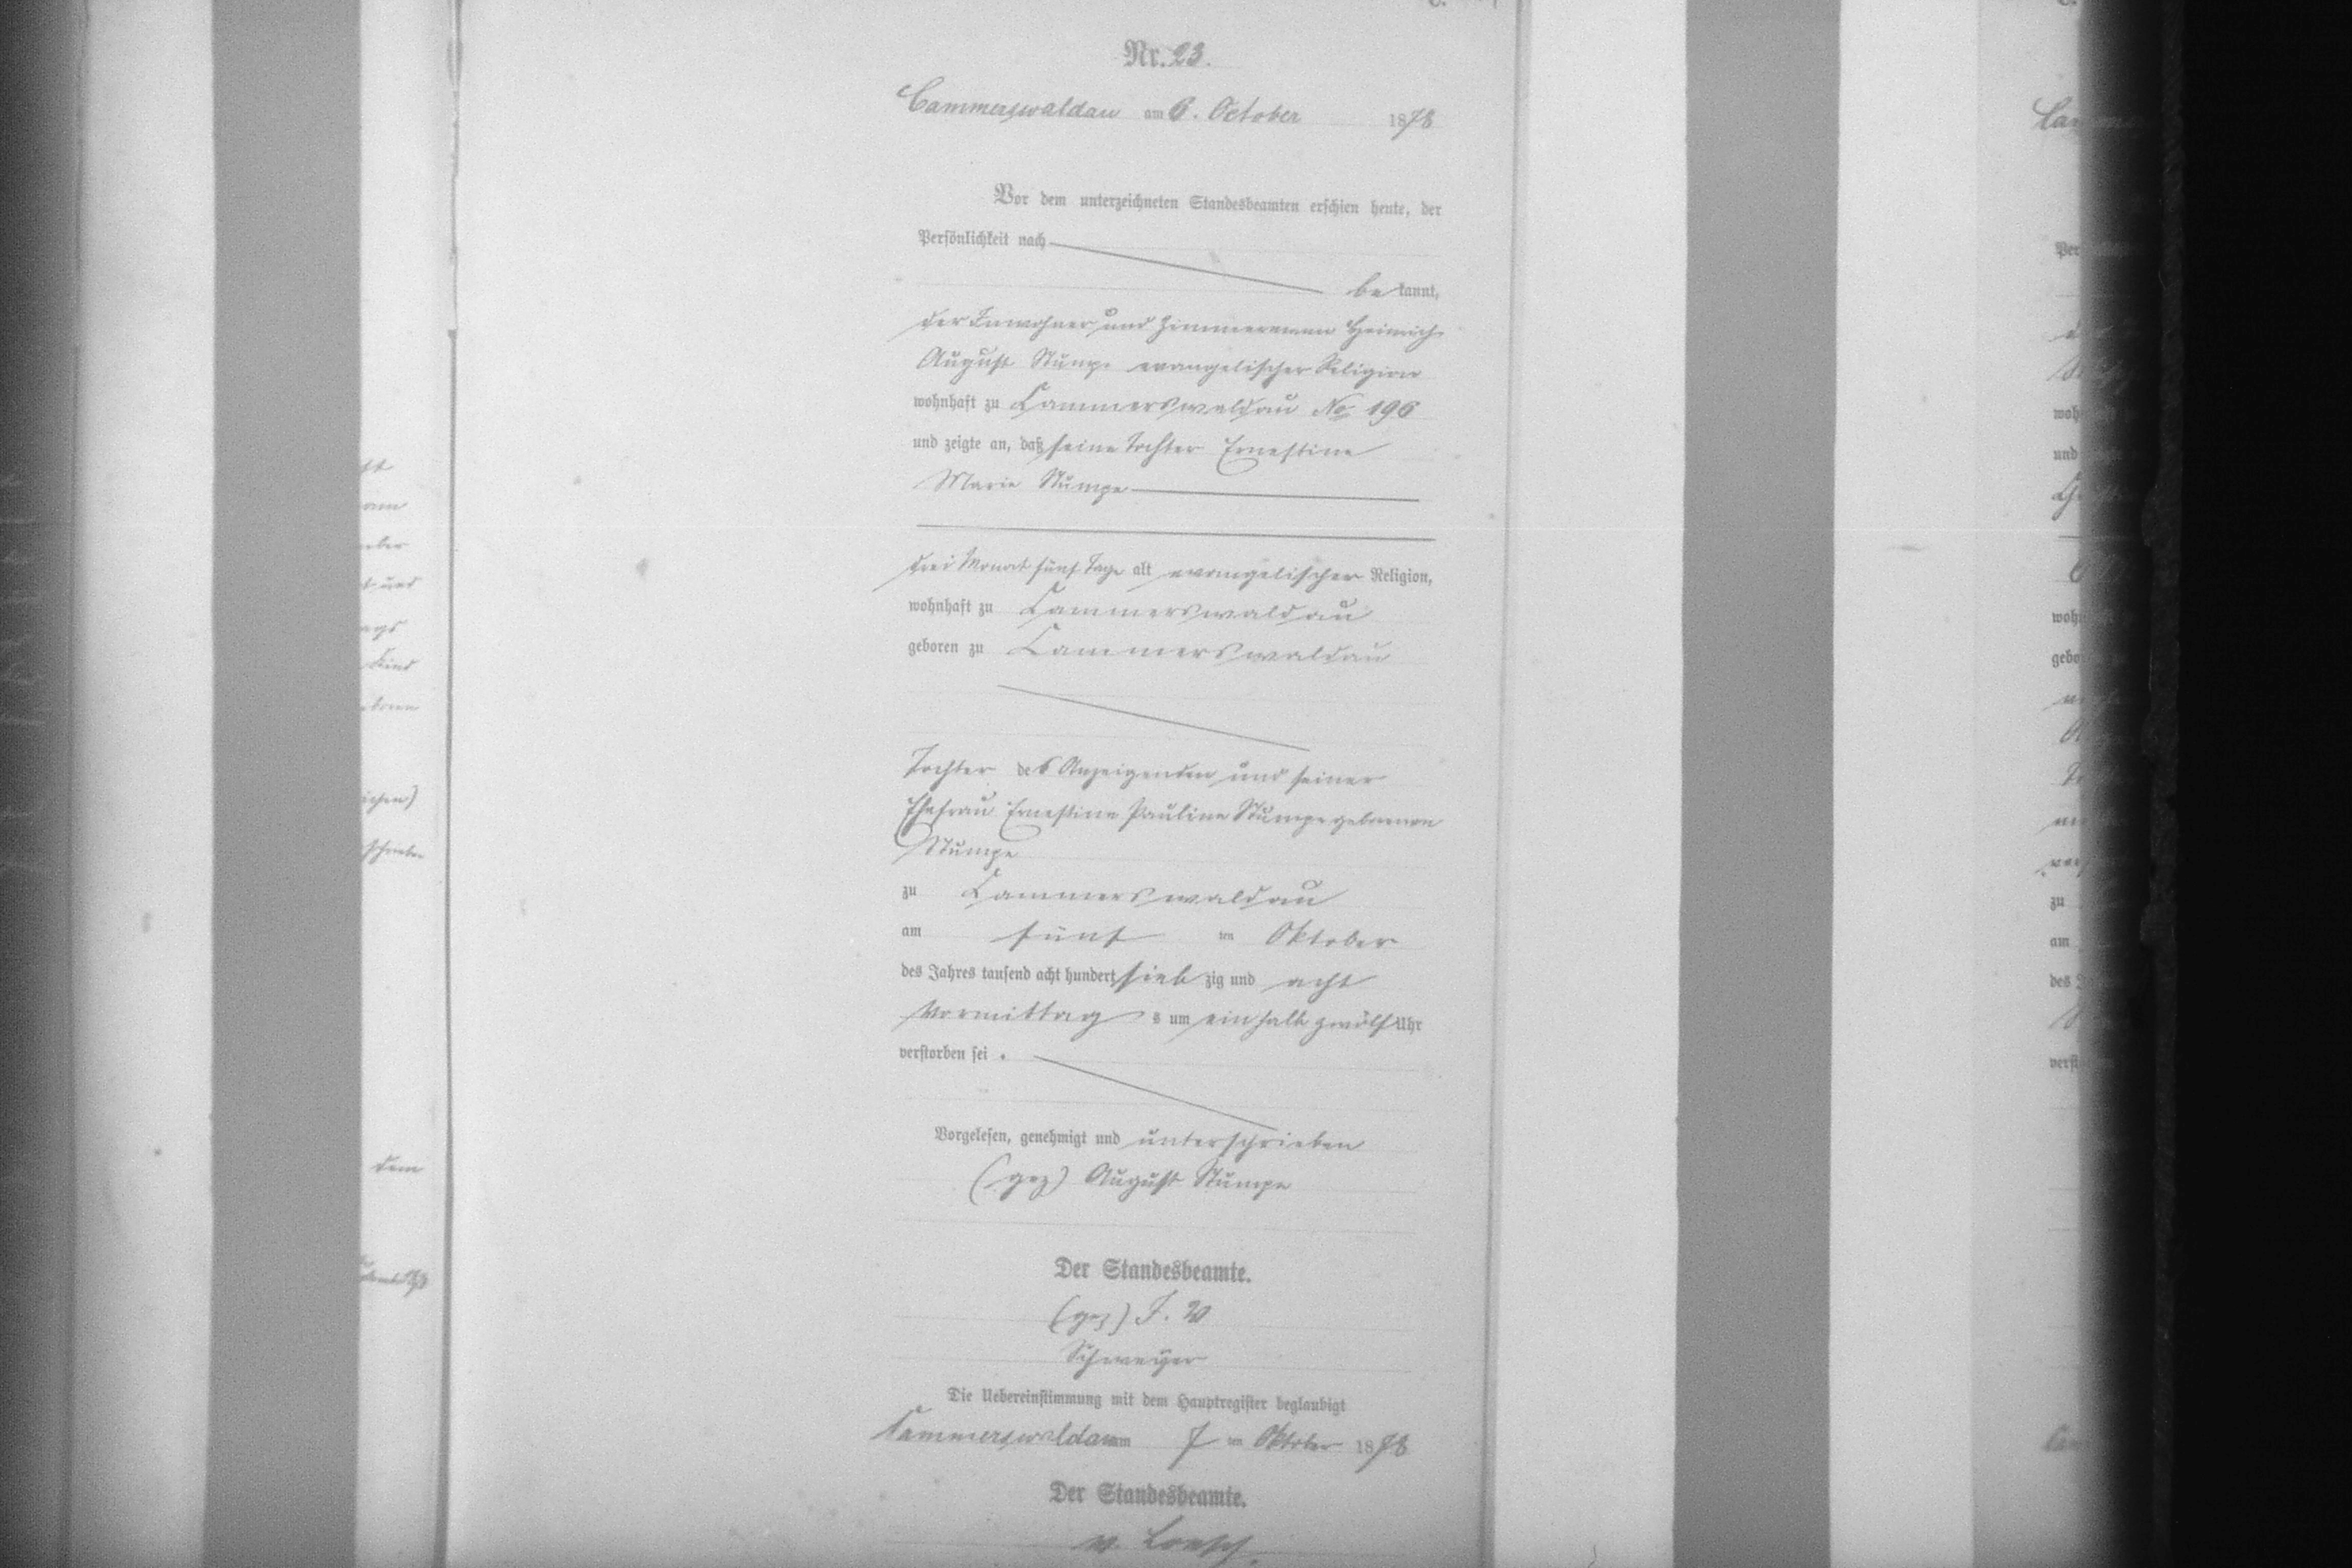 Nr. 23.
Cammerswaldau am 6. October 1878
Vor dem unterzeichneten Standesbeamten erschien heute, der
Persönlichkeit nach
be kannt,
der Inwohner und Zimmermann Heinrich
August Stumpe evangelischer Religion
wohnhaft zu Cammerswaldau No 196
und zeigte an, daß seine Tochter Ernestine
Marie Stumpe
drei Monat fünf Tage alt evangelischer Religion,
wohnhaft zu Cammerswaldau
geboren zu Cammerswaldau
Tochter des Anzeigenden und seiner
Ehefrau Ernestine Pauline Stumpe geborenen
Stumpe
zu Cammerswaldau
am fünf ten Oktober
des Jahres tausend acht hundert sieb zig und acht
Vormittag s um ein halb zwölf Uhr
verstorben sei .
Vorgelesen, genehmigt und unterschrieben
(gez) August Stumpe
Der Standesbeamte.
(gez) F. W
Die Uebereinstimmung mit dem Hauptregister beglaubigt
Cammerswaldau am 7 ten Oktober 1878
Der Standesbeamte.
v. Loesch.